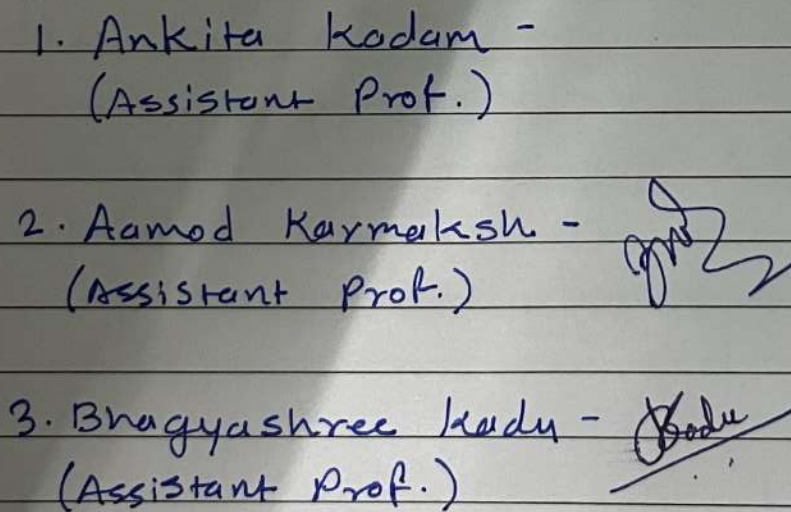 1. Ankita Kadam -
(Assistant Prof.)
2. Aamod Karmaksh -
(Assistant Prof.)
3. Bhagyashree Kadu - Kadu
(Assistant Prof.)